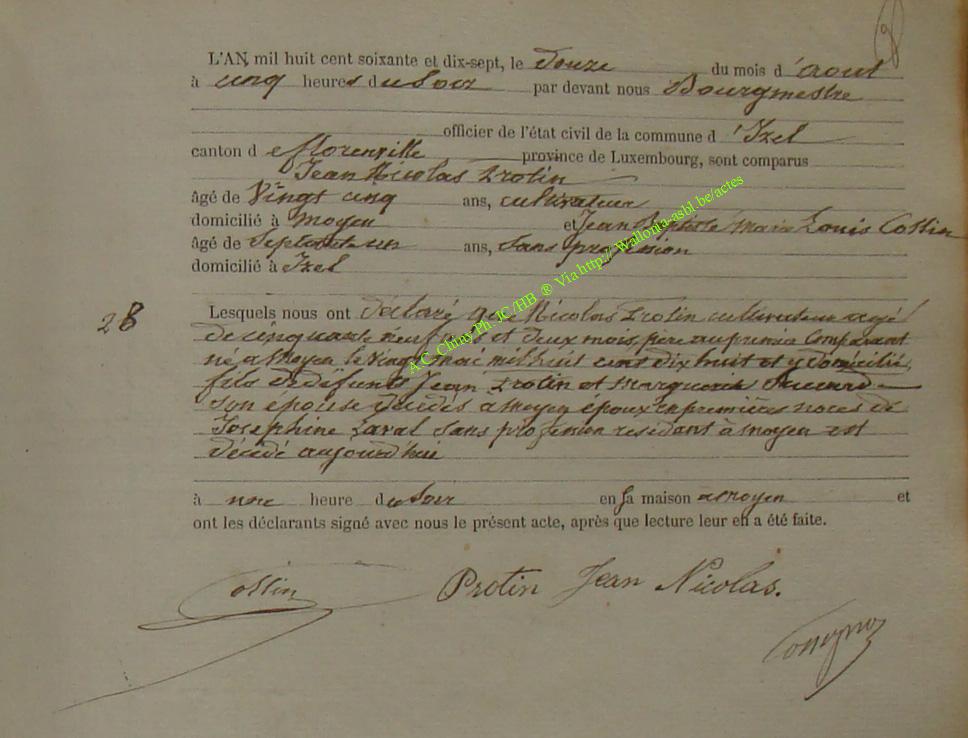 L'AN, mil huit cent soixante et dix-sept, le Douze du mois d'aout
à cinq heures du Soir par devant nous Bourgmestre
officier de l'état civil de la commune d'Izel
canton de florenville province de Luxembourg, sont comparus
Jean Nicolas Protin
âgé de Vingt cinq ans, cultivateur
domicilié à moyen et Jean Baptiste Marie Louis Collin
âgé de Septante un ans, Sans profession
domicilié à Izel
28
Lesquels nous ont déclaré que Nicolas Protin cultivateur agé
de cinquante neuf ans et deux mois, père au premier Comparant
né a Moyen le Vingt mai mil huit cent dix huit et y domicilié,
fils de défunts Jean Protin et Marguerite
Son épouse décédés à Moyen époux en premières noces de
Joséphine Laval Sans profession residant à Moyen est
décédé aujourd'hui
à une heure du Soir en sa maison a moyen et
ont les déclarants signé avec nous le présent acte, après que lecture leur en a été faite.
Collin Protin Jean Nicolas.
A.C. Chiny Ph. JC/HB ® Via http://Wallonia-asbl.be/actes